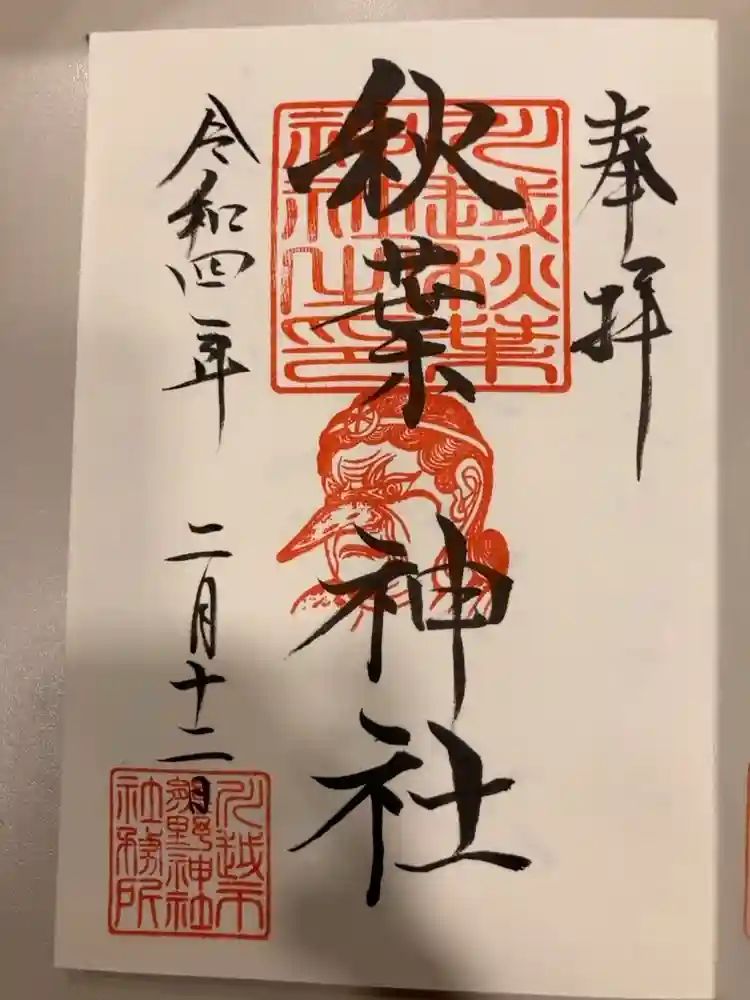 奉拝
川越秋葉
神社之印
秋葉神社
令和四年
二月十二日
川越市
雀野神社
社務所